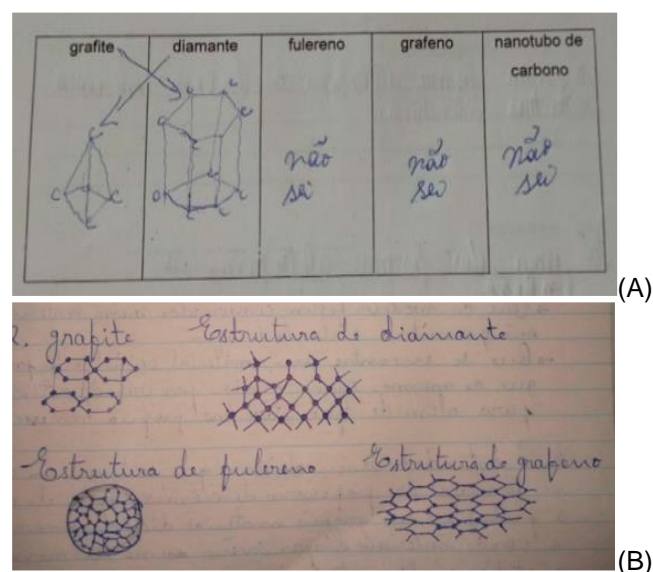 grafite diamante fulereno grafeno nanotubo de carbono
C C C C
C C C C C C C
não sei
não sei
não sei
(A)
2. grafite Estrutura de diamante
Estrutura de fulereno Estrutura de grafeno
(B)